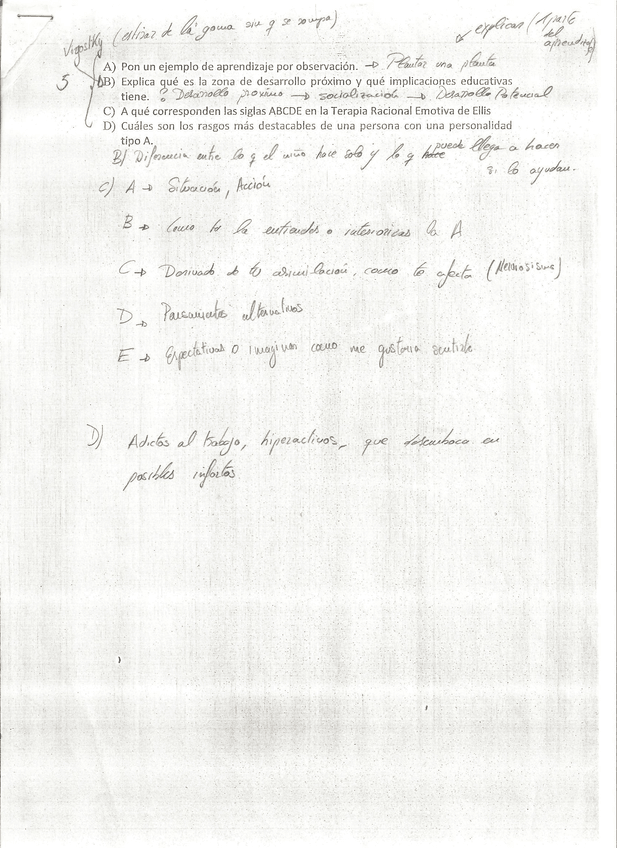 Virgostky (estirar de la goma sin q se rompa)
explicar (1 parte
del
aprendizaje)
A) Pon un ejemplo de aprendizaje por observación. → Plantar una planta
5 B) Explica qué es la zona de desarrollo próximo y qué implicaciones educativas
tiene. ? Desarrollo próximo → socialización → Desarrollo Potencial
C) A qué corresponden las siglas ABCDE en la Terapia Racional Emotiva de Ellis
D) Cuáles son los rasgos más destacables de una persona con una personalidad
tipo A.
B/ Diferencia entre lo q el niño hace solo y lo q puede llega a hacer
si lo ayudan.
C) A → Situación, Acción
B → Como tu la entiendes o interiorizas la A
C → Derivado de tu asimilación, como te afecta (Nerviosismo)
D → Pensamientos alternativos
E → Expectativas o imaginar como me gustaria sentirle
D) Adictos al trabajo, hiperactivos, que desemboca en
posibles infartos